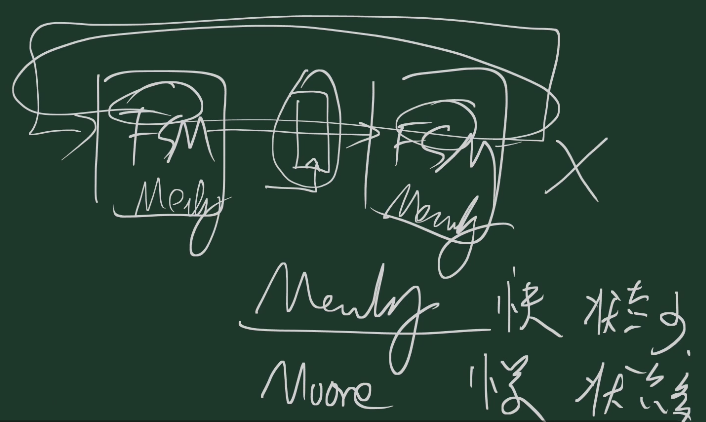 FSM FSM
Mealy Mealy
Mealy 快 状态少
Moore 慢 状态多